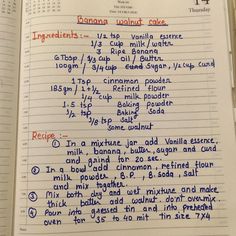 14
Thursday
Banana walnut cake
Ingredients:-
1/2 tsp Vanilla essence
1/3 Cup milk/water
3 Ripe Banana
6 Tbsp / 3/4 Cup Oil / Butter
100gm / 3/4 cup Sugar, 1/4 cup Curd
1 Tsp Cinnamon powder
185gm / 1+1/2 Refined flour
1/4 cup milk powder
1.5 tsp Baking powder
1/2 tsp Baking Soda
1/8 tsp Salt
Some walnut
Recipe :-
① In a mixture jar add Vanilla essence,
milk, banana, butter, sugar and curd
and grind for 20 sec.
② In a bowl add cinnamon, refined flour
milk powder, B.P, B.soda, salt
and mix together.
③ Mix both dry and wet mixture and make
thick batter add walnut. don't overmix.
④ Pour into greased tin and into preheated
oven for 35 to 40 mit tin size 7x4